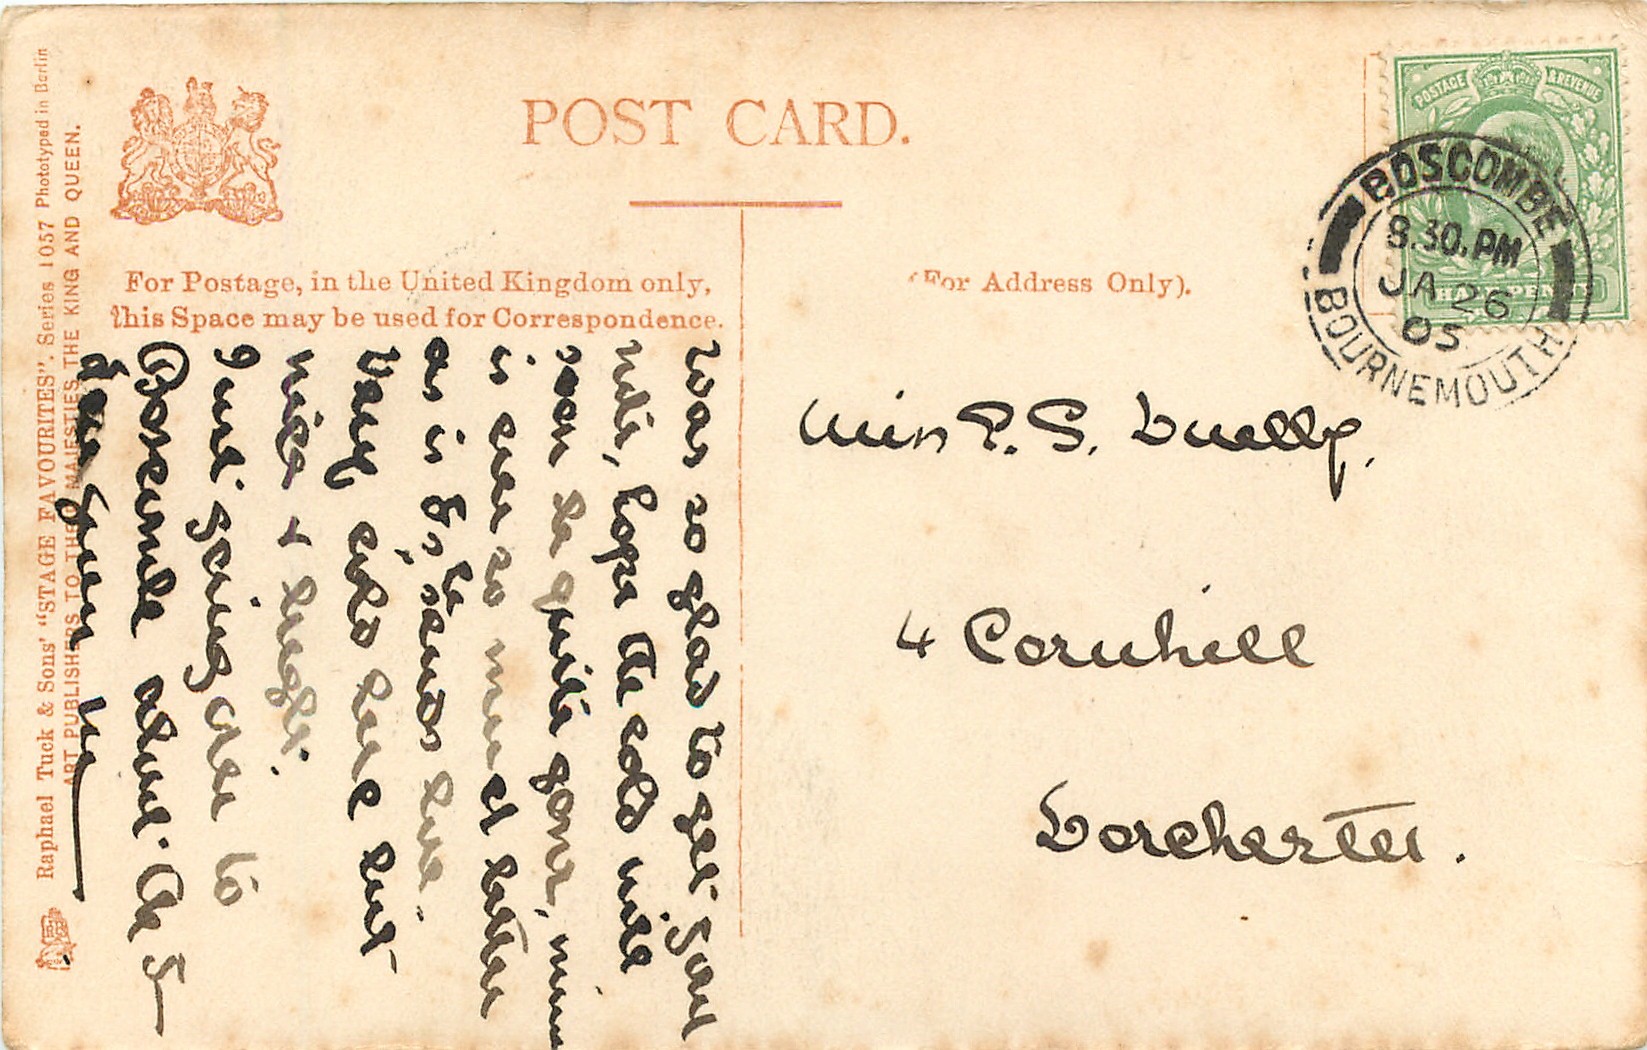 POST CARD.
For Postage, in the United Kingdom only,
this Space may be used for Correspondence.
(For Address Only).
POSTAGE & REVENUE
HALFPENNY
BOSCOMBE
8.30.PM
JA 26
05
BOURNEMOUTH
Miss P. G. Duelly,
4 Cornhill
Dorchester.
Was so glad to get your
note, hope the cold will
soon be quite gone, mine
is ever so much better
as is
Very cold here but
nice & bright.
Just going over to
Boscombe about the
Raphael Tuck & Sons' "STAGE FAVOURITES". Series 1057 Phototyped in Berlin
ART PUBLISHERS TO THEIR MAJESTIES THE KING AND QUEEN.